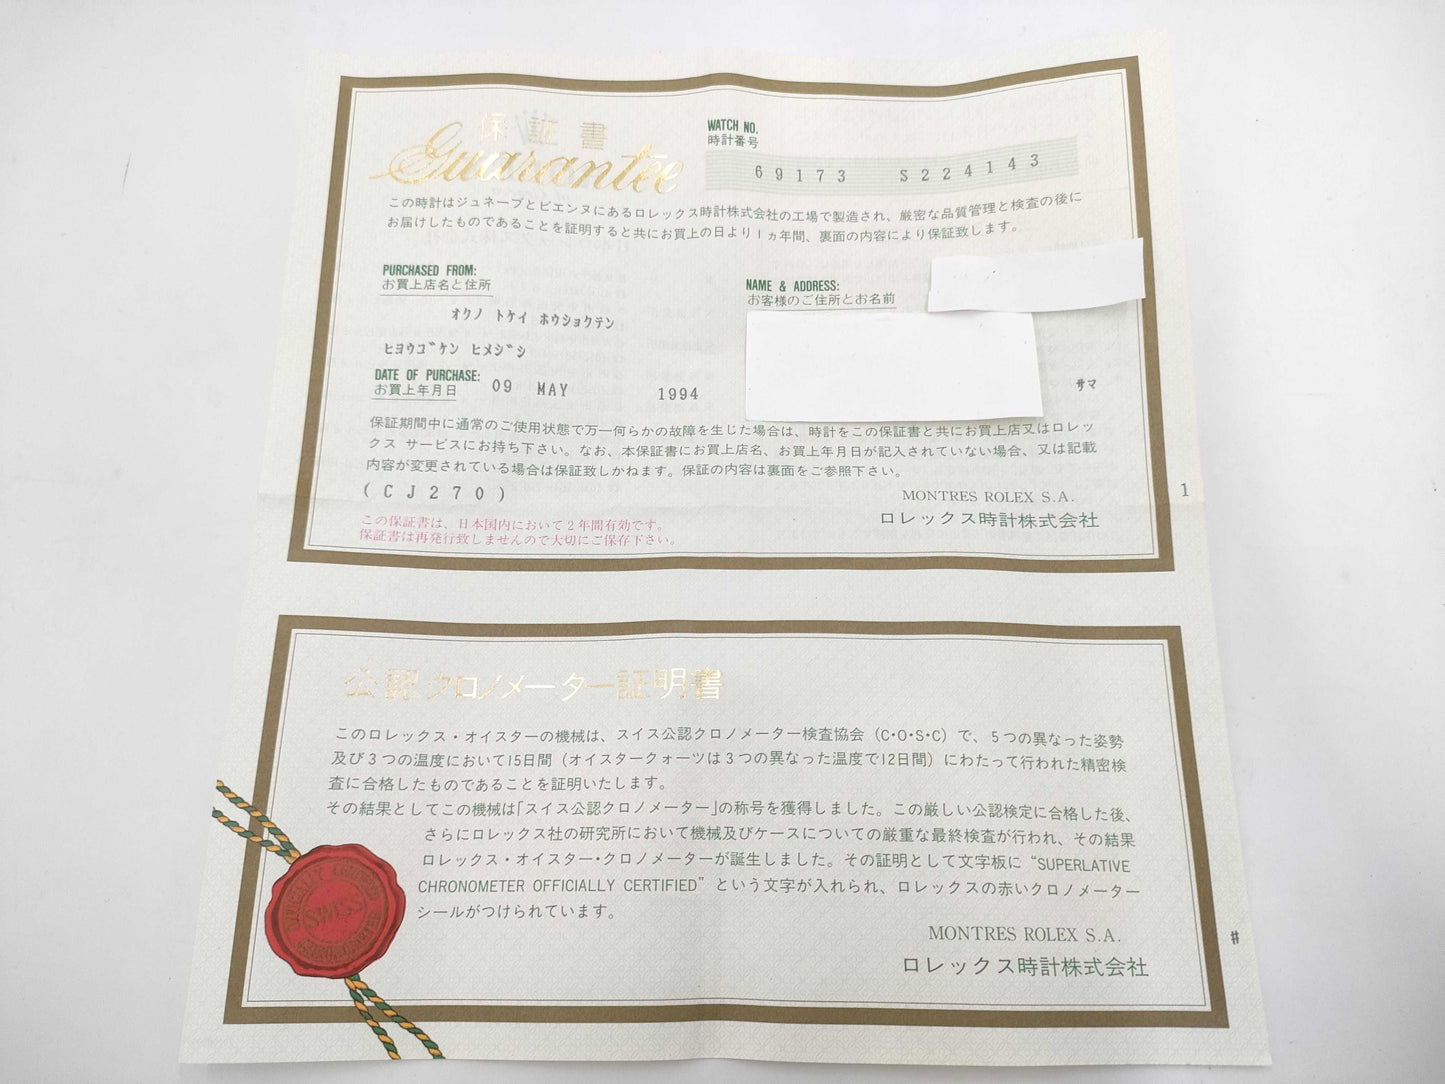 保証書
Guarantee
WATCH NO.
時計番号
69173 S224143
この時計はジュネーブとビエンヌにあるロレックス時計株式会社の工場で製造され、厳密な品質管理と検査の後に
お届けしたものであることを証明すると共にお買上の日より1ヵ年間、裏面の内容により保証致します。
PURCHASED FROM:
お買上店名と住所
オクノ トケイ ホウショクテン
ヒヨウゴケン ヒメジシ
NAME & ADDRESS:
お客様のご住所とお名前
サマ
DATE OF PURCHASE:
お買上年月日
09 MAY 1994
保証期間中に通常のご使用状態で万一何らかの故障を生じた場合は、時計をこの保証書と共にお買上店又はロレッ
クス サービスにお持ち下さい。なお、本保証書にお買上店名、お買上年月日が記入されていない場合、又は記載
内容が変更されている場合は保証致しかねます。保証の内容は裏面をご参照下さい。
(CJ270)
MONTRES ROLEX S.A.
ロレックス時計株式会社
1
この保証書は、日本国内において2年間有効です。
保証書は再発行致しませんので大切にご保存下さい。
公認クロノメーター証明書
このロレックス・オイスターの機械は、スイス公認クロノメーター検査協会(C・O・S・C)で、5つの異なった姿勢
及び3つの温度において15日間(オイスタークォーツは3つの異なった温度で12日間)にわたって行われた精密検
査に合格したものであることを証明いたします。
その結果としてこの機械は「スイス公認クロノメーター」の称号を獲得しました。この厳しい公認検定に合格した後、
さらにロレックス社の研究所において機械及びケースについての厳重な最終検査が行われ、その結果
ロレックス・オイスター・クロノメーターが誕生しました。その証明として文字板に“SUPERLATIVE
CHRONOMETER OFFICIALLY CERTIFIED”という文字が入れられ、ロレックスの赤いクロノメーター
シールがつけられています。
OFFICIALLY CERTIFIED
SWISS
CHRONOMETER
MONTRES ROLEX S.A.
ロレックス時計株式会社
#